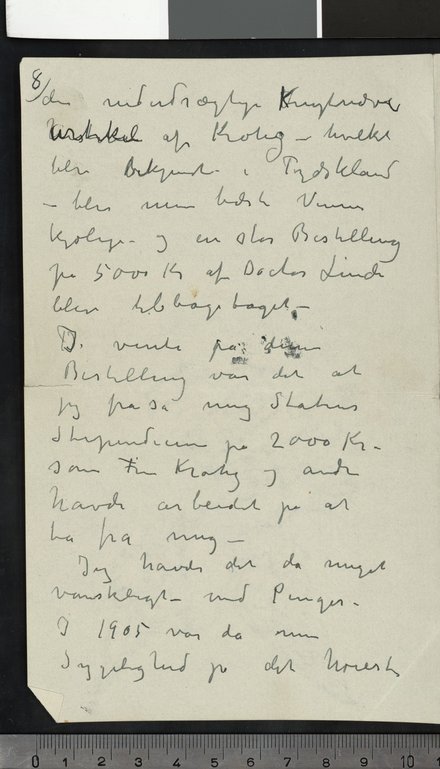 8/
den nederdrægtige Knyttnæve
Artikel af Krohg – hvilket
blev bekjendt i Tydskland
– blev min bedste Venn
kjølige – og en stor Bestilling
på 5000 Kr af Doctor Linde
blev tilbagetaget –
I vente på denne
Bestilling var det at
jeg frasa mig Statens
Stipendium på 2000 Kr –
som Krohg og andre
havde arbeidet på at
ta fra mig –
Jeg havde det da meget
vanskeligt – med Penger –
I 1905 var da min
Sygelighed på det høieste
0 1 2 3 4 5 6 7 8 9 10 11